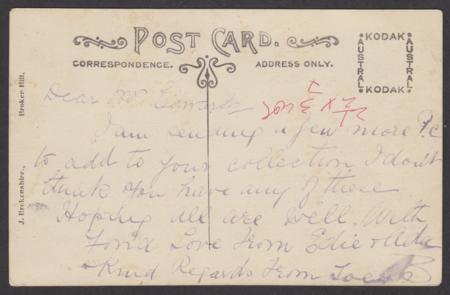 POST CARD.
CORRESPONDENCE.
ADDRESS ONLY.
KODAK
AUSTRAL
AUSTRAL
KODAK
J. Brokenshire, Broken Hill.
Dear Mr
I am sending a few more P.c
to add to your collection I don't
think you have any of these
Hoping all are well With
Fond Love From Edie
Kind Regards From